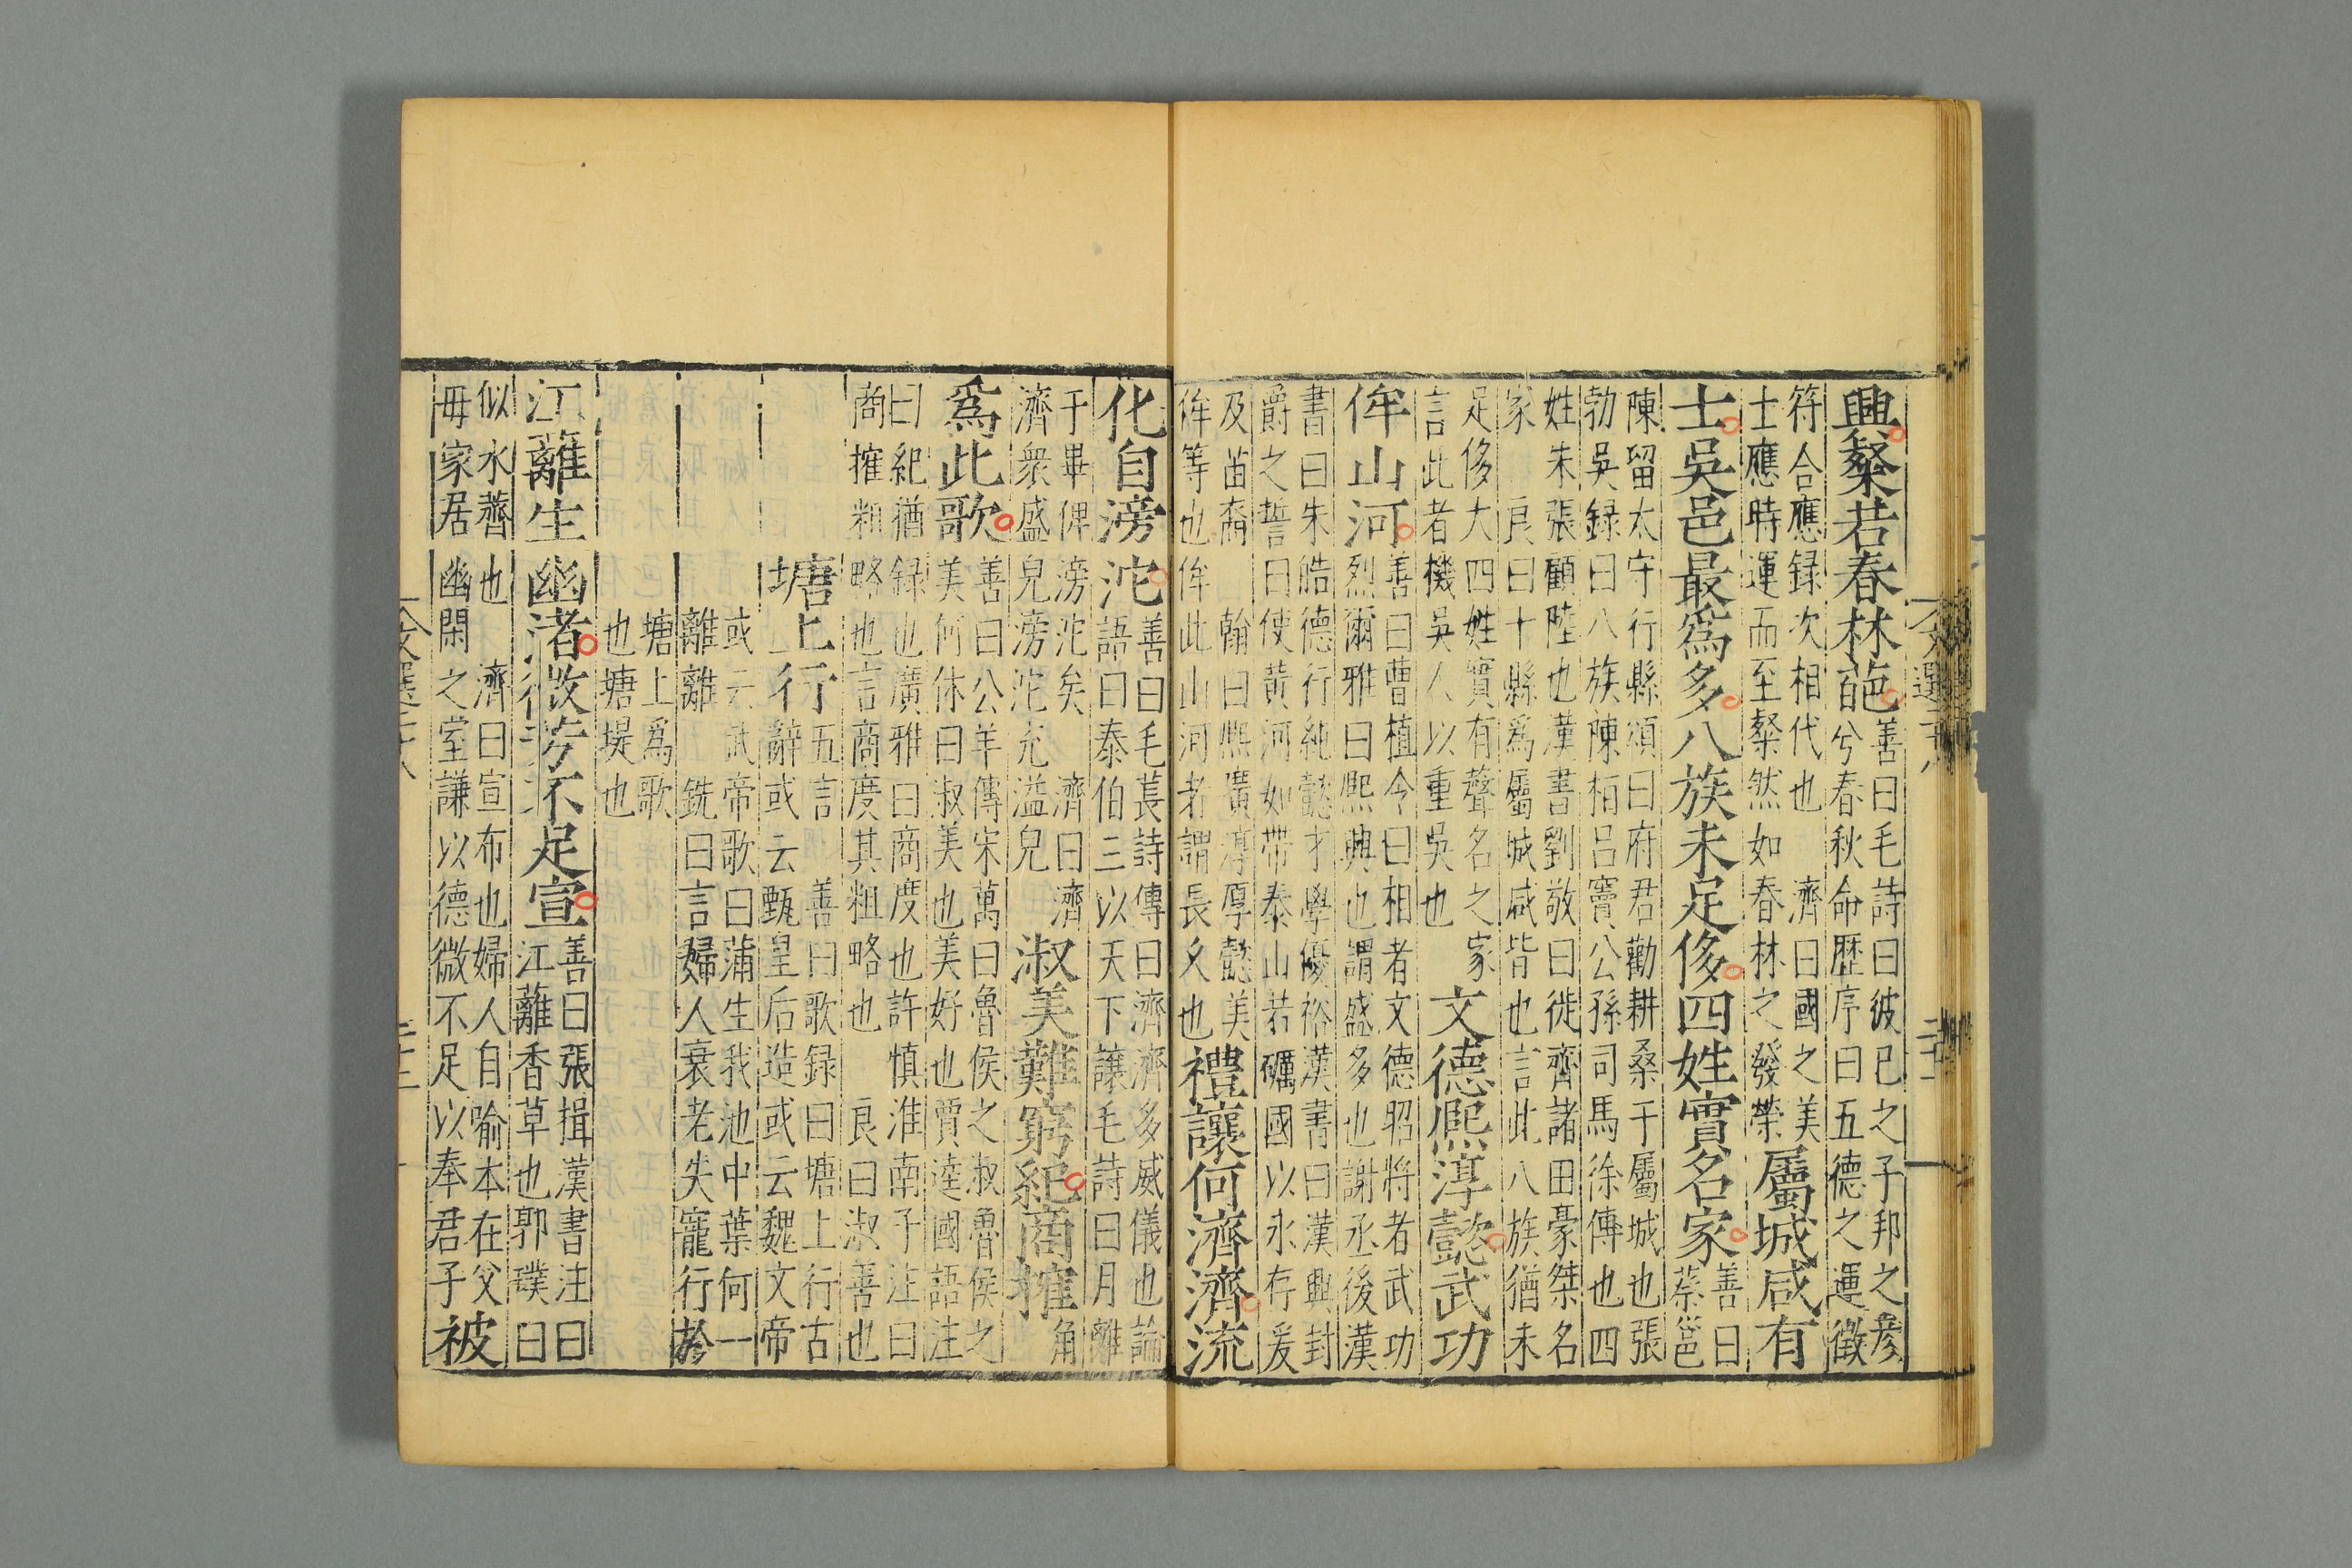 興粲若春林葩善曰毛詩曰彼己之子邦之彥
兮春秋命歷序曰五德之運徵
符合應録次相代也 濟曰國之美
士應時運而至粲然如春林之發榮屬城咸有
士吳邑最爲多八族未足侈四姓實名家善曰
蔡邕
陳留太守行縣頌曰府君勸耕桑于屬城也張
勃吳録曰八族陳栢呂竇公孫司馬徐傳也四
姓朱張顧陸也漢書劉敬曰徙齊諸田豪桀名
家 良曰十縣爲屬城咸皆也言此八族猶未
足侈大四姓實有聲名之家
言此者機吳人以重吳也文德熈淳懿武功
侔山河善曰曹植令曰相者文德昭將者武功
烈爾雅曰熈興也謂盛多也謝丞後漢
書曰朱皓德行純懿才學優裕漢書曰漢興封
爵之誓曰使黄河如帶泰山若礪國以永存爰
及苗裔 翰曰熈廣淳厚懿美
侔等也侔此山河者謂長久也禮讓何濟濟流
化自滂沱善曰毛萇詩傳曰濟濟多威儀也論
語曰泰伯三以天下讓毛詩曰月離
于畢俾滂沱矣 濟曰濟
濟衆盛皃滂沱充溢皃淑美難窮紀商搉角
爲此歌善曰公羊傳宋萬曰魯侯之淑魯侯之
美何休曰淑美也美好也賈逵國語注
曰紀猶録也廣雅曰商度也許慎淮南子注曰
商搉粗略也言商度其粗略也 良曰淑善也
塘上行五言 善曰歌録曰塘上行古
辭或云甄皇后造或云魏文帝
或云武帝歌曰蒲生我池中葉何一
離離 銑曰言婦人衰老失寵行於
塘上爲歌
也塘堤也
江蘺生幽渚微芳不足宣善曰張揖漢書注曰
江蘺香草也郭璞曰
似水薺也 濟曰宣布也婦人自喻本在父
毋家居幽閑之室謙以德微不足以奉君子被